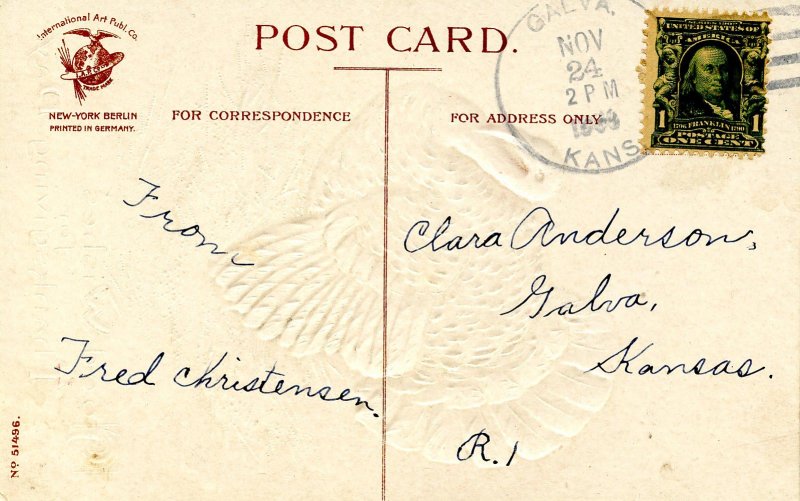 International Art Publ. Co.
TRADE MARK
NEW-YORK BERLIN
PRINTED IN GERMANY.
POST CARD.
FOR CORRESPONDENCE
FOR ADDRESS ONLY
GALVA.
NOV
24
2 PM
KANS
SERIES 1902
UNITED STATES OF
AMERICA
1706 FRANKLIN 1790
1 POSTAGE 1
ONE CENT
From
Fred Christensen.
Clara Anderson,
Galva,
Kansas.
R.1
No 51496.